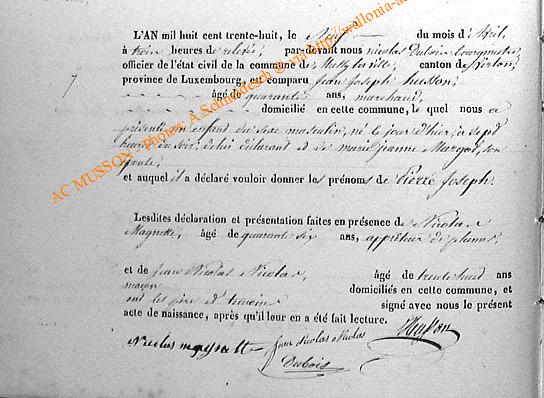 L'AN mil huit cent trente-huit, le neuf du mois d'avril,
à trois heures de relevée, par-devant nous nicolas Dubois bourgmestre,
officier de l'état civil de la commune de canton de Virton,
province de Luxembourg, est comparu jean joseph husson,
7
âgé de quarante ans, marchand,
domicilié en cette commune, le quel nous a
présenté un enfant du sexe masculin, né le jour d'hier, à sept
heures du soir, de lui déclarant et de marie jeanne son
épouse,
et auquel il a déclaré vouloir donner les prénoms de Pierre Joseph.
Lesdites déclaration et présentation faites en présence de Nicolas
Magnette, âgé de quarante six ans, de plumes,
et de Jean Nicolas Nicolas, âgé de trente huit ans
maçon domiciliés en cette commune, et
ont les père et témoins signé avec nous le présent
acte de naissance, après qu'il leur en a été fait lecture.
Nicolas magnette jean nicolas nicolas Husson
Dubois
AC MUSSON - Photos: A.Schmidesch @ via http://wallonia-a